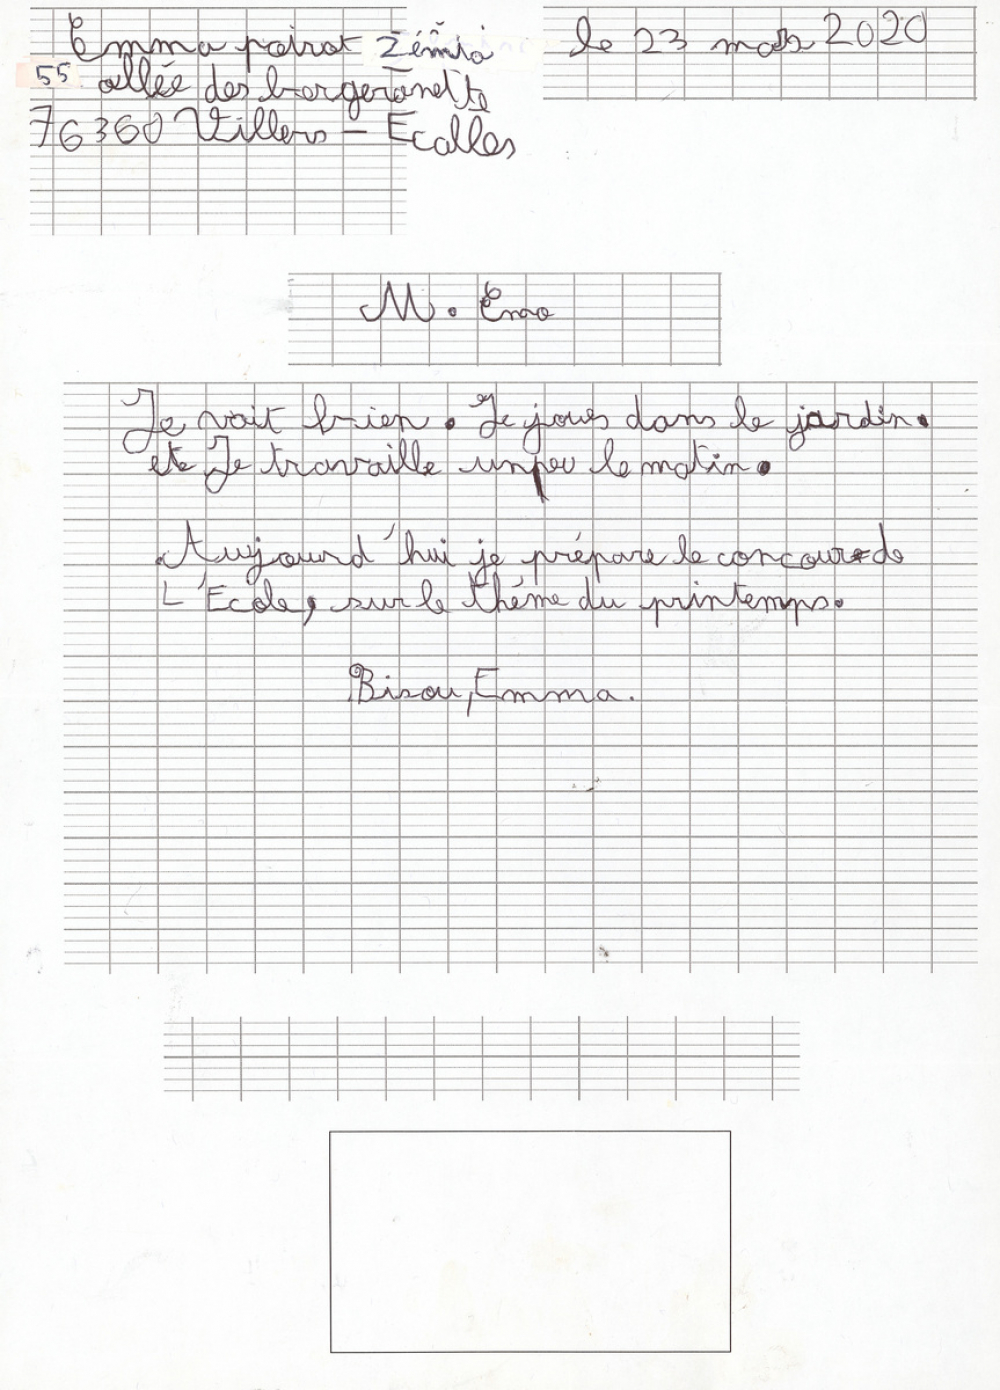 Emma poirot Zémia
le 23 mars 2020
55 allée des bergeronette
76360 Villers - Ecalles
M. Eno
Je vait bien. Je joues dans le jardin.
et Je travaille un peu le matin.
Aujourd'hui je prépare le concours de
L'Ecole, sur le thème du printemps.
Bisou, Emma.